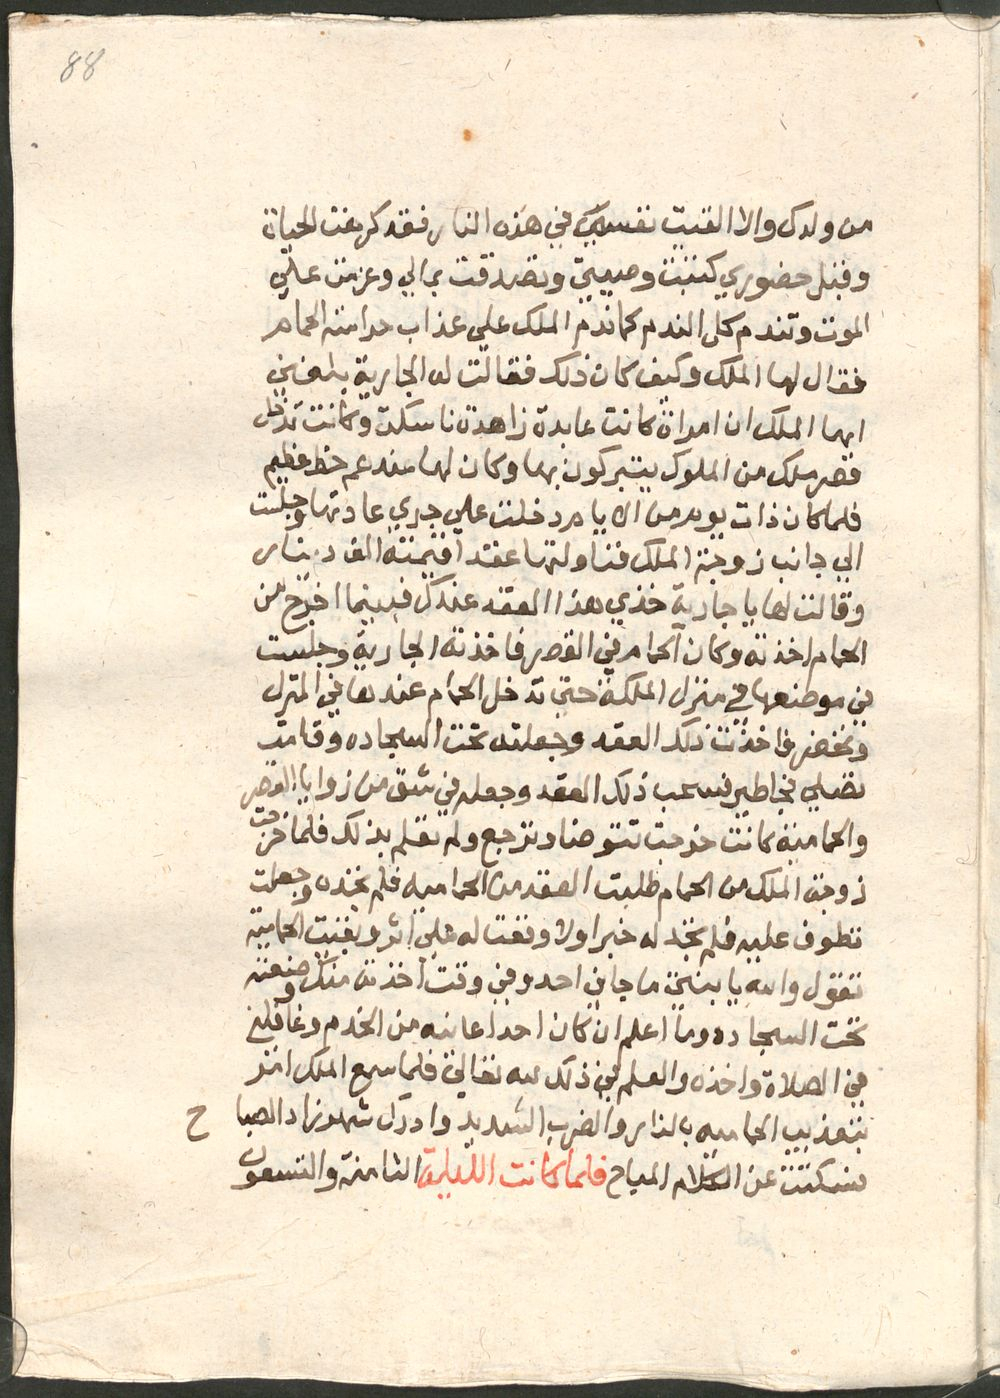 88
من ولدك والا القيت نفسي في هذه النار فقد كرهت الحياة
وقبل حضوري كتبت وصيتي وتصدقت بمالي وعزمت علي
الموت وتندم كل الندم كما ندم الملك علي عذاب حرامية الحمام
فقال لها الملك وكيف كان ذلك فقالت له الجارية بلغني
ايها الملك ان امراة كانت عابدة زاهدة ناسكة وكانت تدخل
قصر ملك من الملوك يتبركون بها وكان لها عندهم حظ عظيم
فلما كان ذات يوم من الايام دخلت علي جري عادتها وجلست
الي جانب زوجة الملك فناولتها عقدا قيمته الف دينار
وقالت لها يا جارية خذي هذا العقد عندك فبينما اخرج من
الحمام اخذته وكان الحمام في القصر فاخذته الجارية وجلست
في موضعها في منزل الملكة حتي تدخل الحمام عندها في المنزل
وتخضر فاخذت ذلك العقد وجعلته تحت السجاده وقامت
تصلي فجا طير فسحب ذلك العقد وجعله في شق من زوايا القصر
والحامية كانت خرجت تتوضا وترجع ولم تعلم بذلك فلما خرجت
زوجة الملك من الحمام طلبت العقد من الحراميه فلم تجده وجعلت
تطوف عليه فلم تجد له خبر اولا وقعت له علي اثر وبقيت الحامية
تقول والله يا بنتي ما جاني احد وفي وقت اخذته منك وضعته
تحت السجاده وما اعلم ان كان احدا عاينه من الخدم وغافلني
في الصلاة واخذه والعلم في ذلك لله تعالي فلما سمع الملك امر
بتعذيب الحاميه بالنار والضرب الشديد وادرك شهرزاد الصبا ح
فسكتت عن الكلام المباح فلما كانت الليلة الثامنة والتسعون